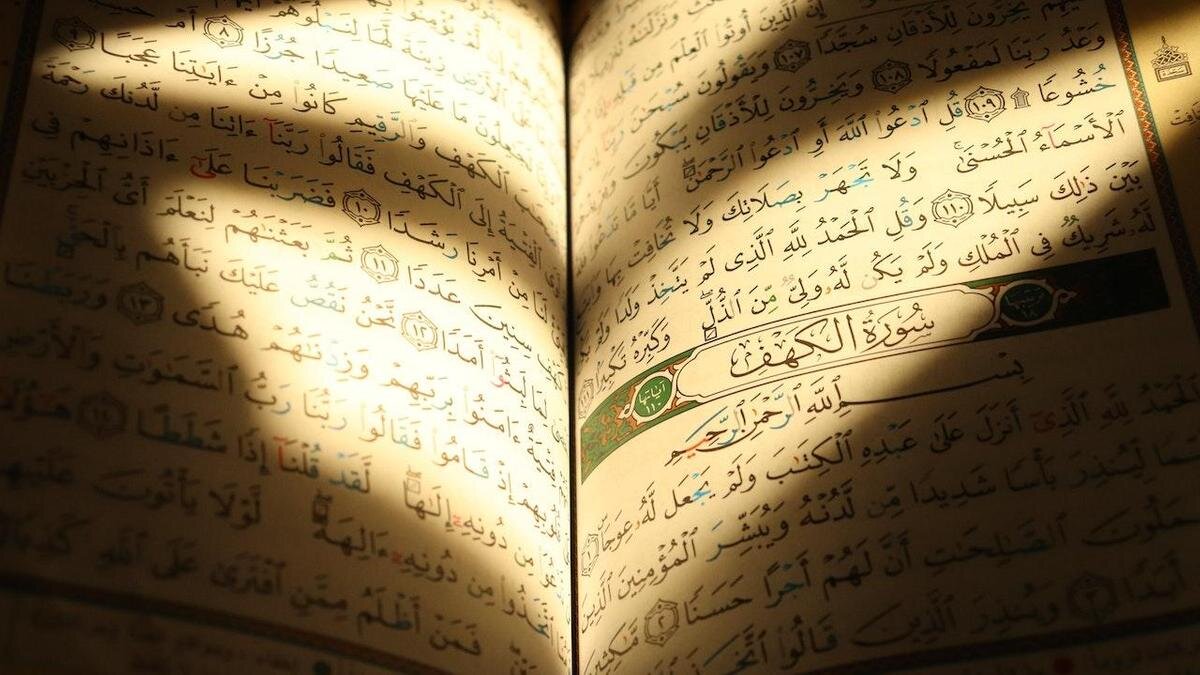 إِنَّ ٱلَّذِينَ أُوتُوا۟ ٱلْعِلْمَ مِن قَبْلِهِۦٓ
يَخِرُّونَ لِلْأَذْقَانِ سُجَّدًا ١٠٧ وَيَقُولُونَ سُبْحَٰنَ رَبِّنَا
وَعْدُ رَبِّنَا لَمَفْعُولًا ١٠٨ وَيَخِرُّونَ لِلْأَذْقَانِ يَبْكُونَ وَيَزِيدُهُمْ
خُشُوعًا ۩ ١٠٩ قُلِ ٱدْعُوا۟ ٱللَّهَ أَوِ ٱدْعُوا۟ ٱلرَّحْمَٰنَ أَيًّا مَّا تَدْعُوا۟
ٱلْأَسْمَآءُ ٱلْحُسْنَىٰ وَلَا تَجْهَرْ بِصَلَاتِكَ وَلَا تُخَافِتْ بِهَا
بَيْنَ ذَٰلِكَ سَبِيلًا ١١٠ وَقُلِ ٱلْحَمْدُ لِلَّهِ ٱلَّذِى لَمْ يَتَّخِذْ وَلَدًا وَلَمْ
لَّهُۥ شَرِيكٌ فِى ٱلْمُلْكِ وَلَمْ يَكُن لَّهُۥ وَلِىٌّ مِّنَ ٱلذُّلِّ وَكَبِّرْهُ تَكْبِيرًا
سُورَةُ الكَهْفِ
آيَاتُهَا ١١٠
بِسْمِ ٱللَّهِ ٱلرَّحْمَٰنِ ٱلرَّحِيمِ
ٱلْحَمْدُ لِلَّهِ ٱلَّذِىٓ أَنزَلَ عَلَىٰ عَبْدِهِ ٱلْكِتَٰبَ وَلَمْ يَجْعَل لَّهُۥ عِوَجَا ١
لِّيُنذِرَ بَأْسًا شَدِيدًا مِّن لَّدُنْهُ وَيُبَشِّرَ ٱلْمُؤْمِنِينَ ٱلَّذِينَ
يَعْمَلُونَ ٱلصَّٰلِحَٰتِ أَنَّ لَهُمْ أَجْرًا حَسَنًا ٢ مَّٰكِثِينَ
أَبَدًا ٣ وَيُنذِرَ ٱلَّذِينَ قَالُوا۟ ٱتَّخَذَ
زِينَةً لَّهَا لِنَبْلُوَهُمْ
مَا عَلَيْهَا صَعِيدًا جُرُزًا ٨ أَمْ
ٱلْكَهْفِ وَٱلرَّقِيمِ كَانُوا۟ مِنْ ءَايَٰتِنَا عَجَبًا ٩
ٱلْفِتْيَةُ إِلَى ٱلْكَهْفِ فَقَالُوا۟ رَبَّنَآ ءَاتِنَا مِن لَّدُنكَ رَحْمَةً
لَنَا مِنْ أَمْرِنَا رَشَدًا ١٠ فَضَرَبْنَا عَلَىٰٓ ءَاذَانِهِمْ فِى
ٱلْكَهْفِ سِنِينَ عَدَدًا ١١ ثُمَّ بَعَثْنَٰهُمْ لِنَعْلَمَ أَىُّ ٱلْحِزْبَيْنِ
لِمَا لَبِثُوٓا۟ أَمَدًا ١٢ نَّحْنُ نَقُصُّ عَلَيْكَ نَبَأَهُم بِٱلْحَقِّ
فِتْيَةٌ ءَامَنُوا۟ بِرَبِّهِمْ وَزِدْنَٰهُمْ هُدًى ١٣ وَرَبَطْنَا
قُلُوبِهِمْ إِذْ قَامُوا۟ فَقَالُوا۟ رَبُّنَا رَبُّ ٱلسَّمَٰوَٰتِ وَٱلْأَرْضِ
مِن دُونِهِۦٓ إِلَٰهًا لَّقَدْ قُلْنَآ إِذًا شَطَطًا ١٤ هَٰٓؤُلَآءِ
ٱتَّخَذُوا۟ مِن دُونِهِۦٓ ءَالِهَةً لَّوْلَا يَأْتُونَ عَلَيْهِم
فَمَنْ أَظْلَمُ مِمَّنِ ٱفْتَرَىٰ عَلَى ٱللَّهِ كَذِبًا